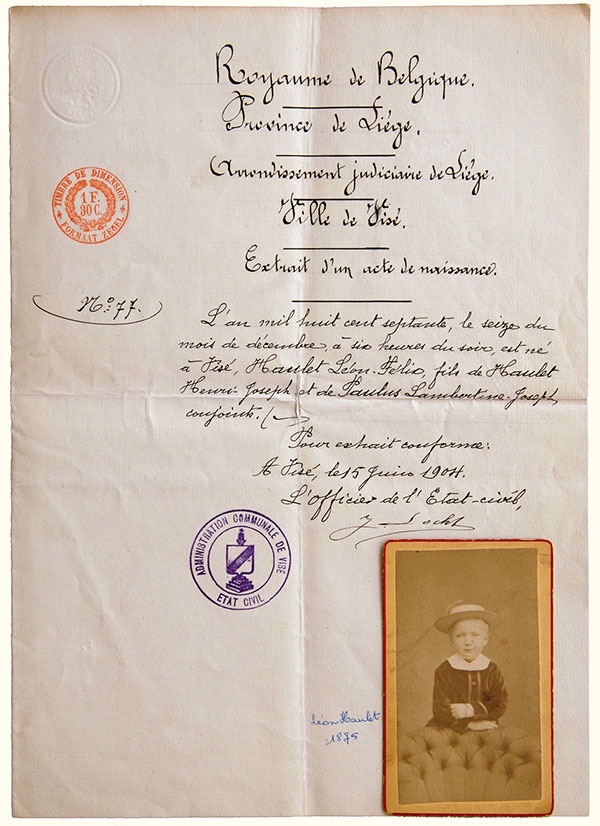 Royaume de Belgique.
Province de Liége.
Arrondissement judiciaire de Liége.
Ville de Visé.
Extrait d'un acte de naissance.
TIMBRE DE DIMENSION
1 F.
30 C.
FORMAAT ZEGEL
No: 77.
L'an mil huit cent septante, le seize du
mois de décembre, à six heures du soir, est né
à Visé, Haulet Léon-Félix, fils de Haulet
Henri-Joseph et de Paulus Lambertine-Joseph
conjoints.
Pour extrait conforme:
A Visé, le 15 Juin 1904.
L'Officier de l'Etat-civil,
ADMINISTRATION COMMUNALE DE VISE
ETAT CIVIL
Léon Haulet
1875